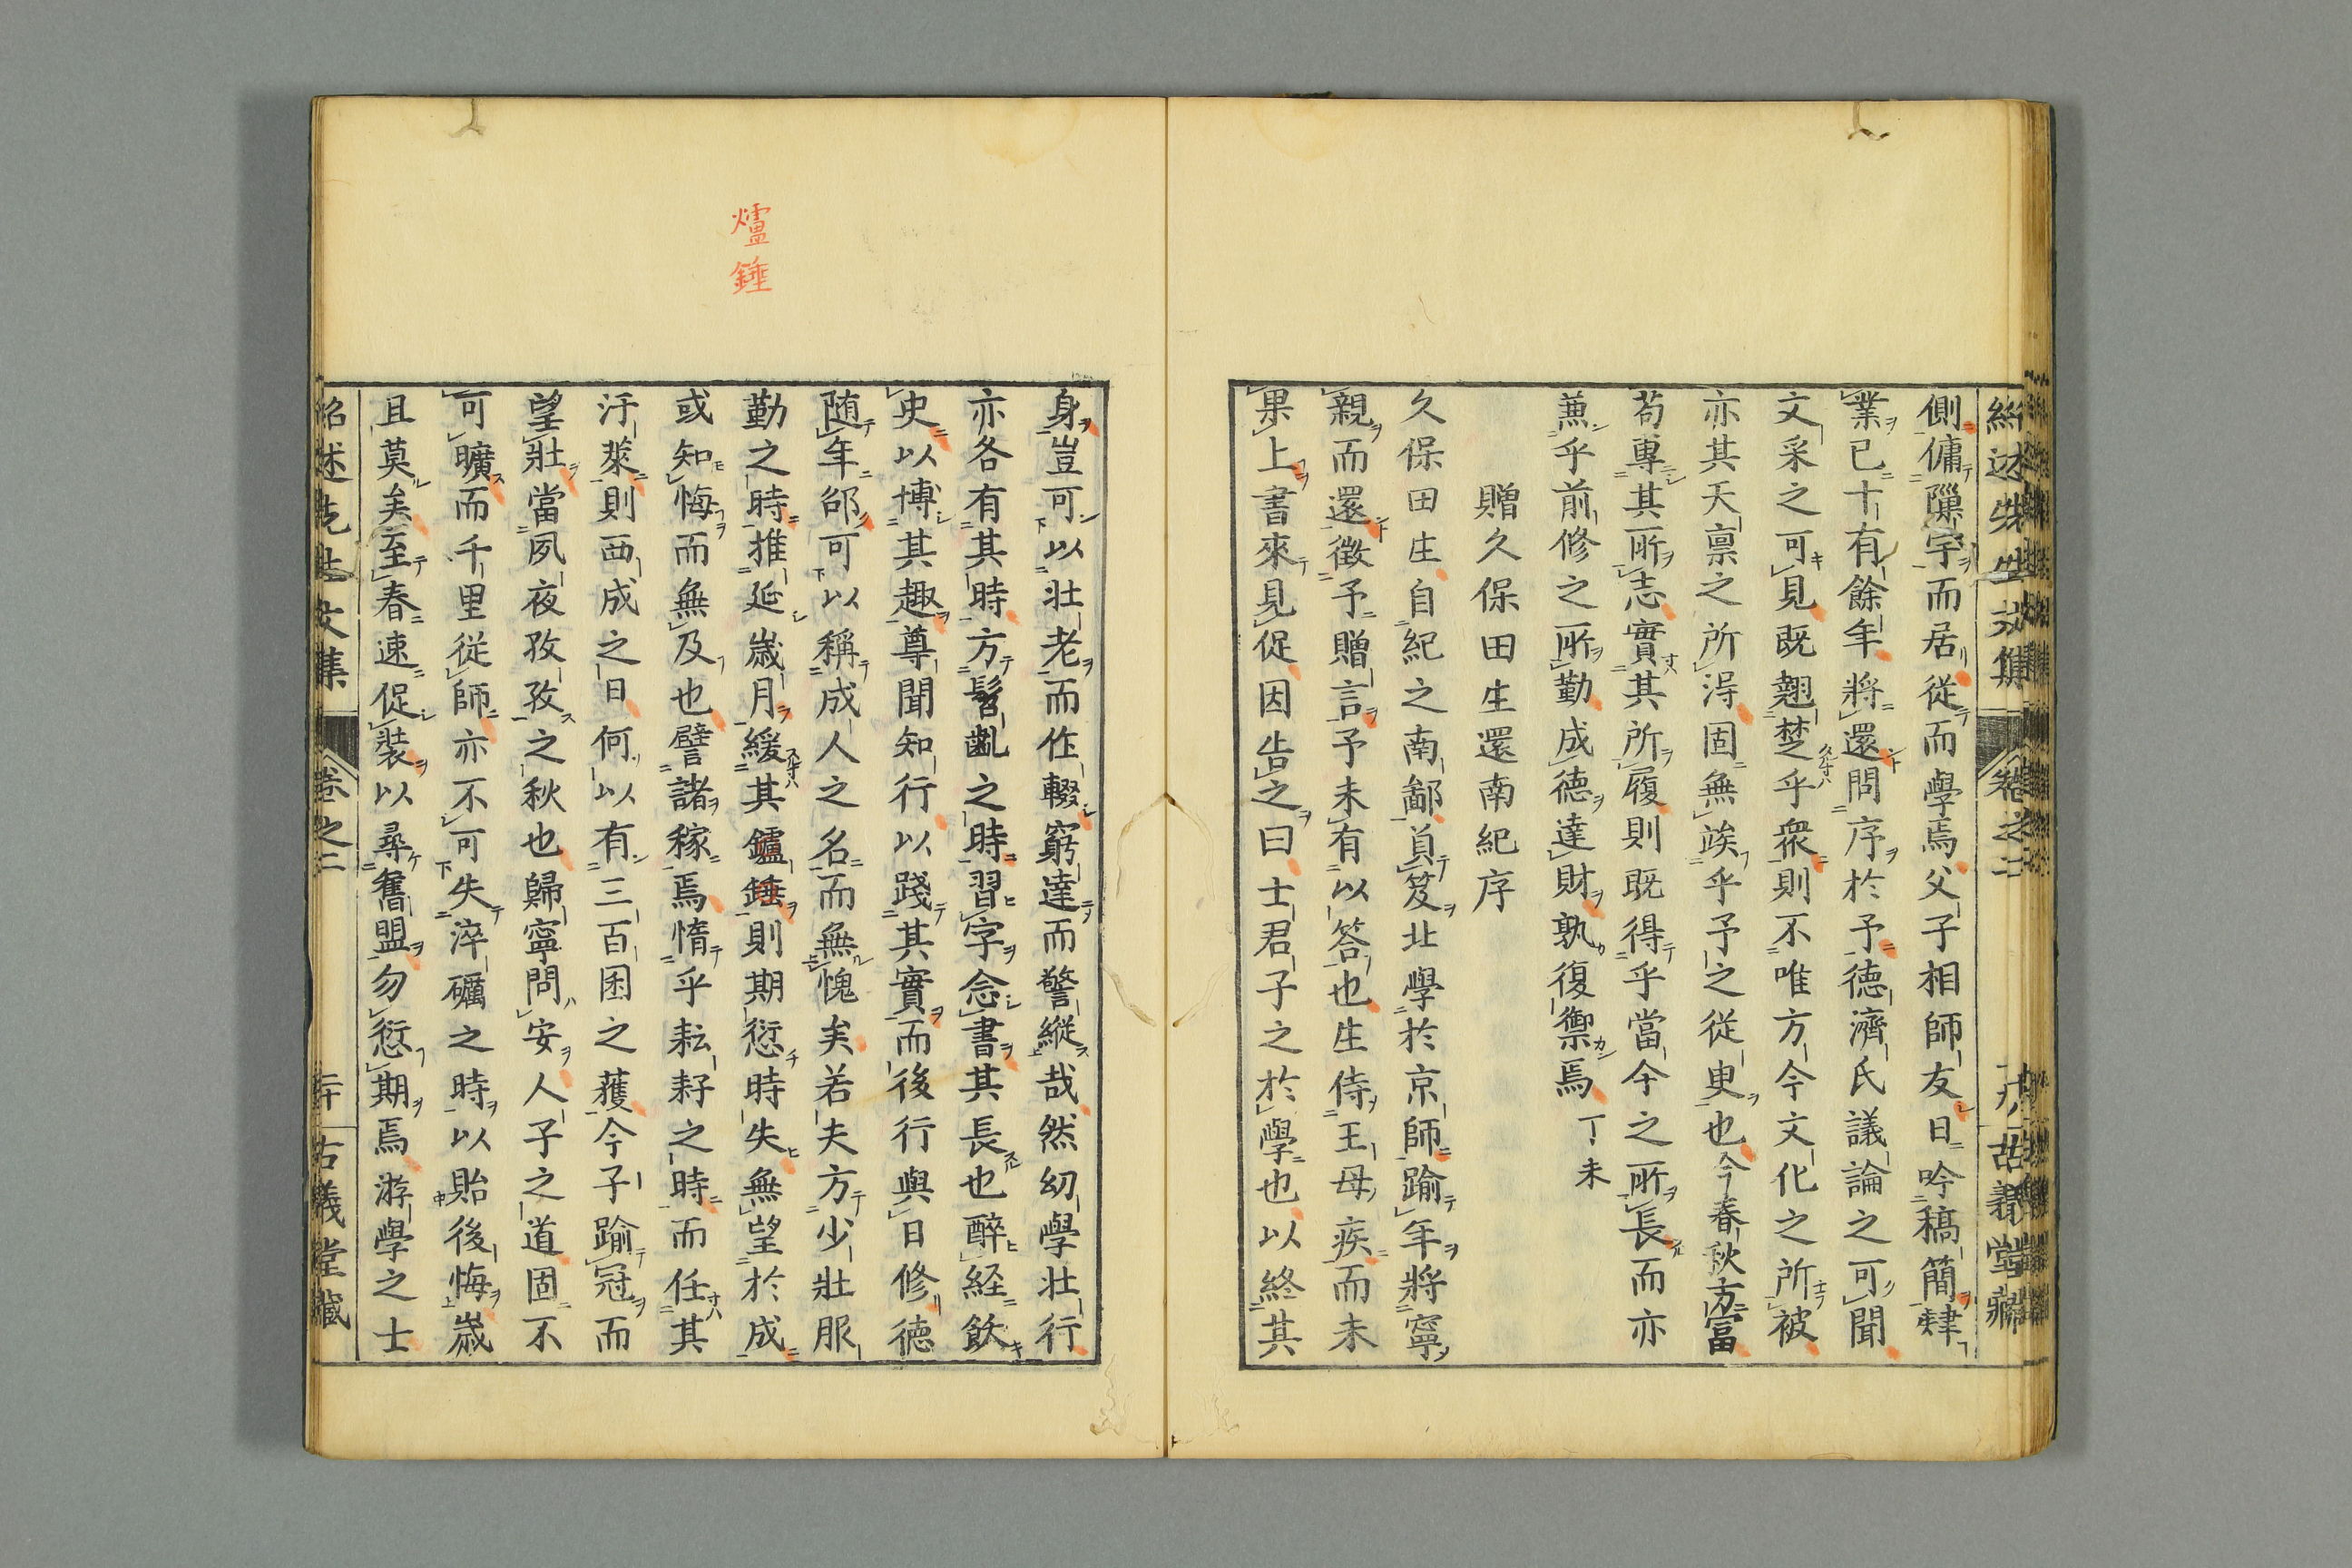 紹述先生文集
卷之二
古義堂藏
側傭隟宇而居從而學焉父子相師友日吟稿簡肄
業已十有餘年將還問序於予德濟氏議論之可聞
文采之可見既翹楚乎衆則不唯方今文化之所被
亦其天稟之所淂固無竢乎予之從臾也今春秋方富
苟專其所志實其所履則既得乎當今之所長而亦
蕉乎前修之所勤成德達財孰復禦焉 丁未
贈久保田生還南紀序
久保田生自紀之南鄙負笈北學於京師踰年將寧
親而還徵予贈言予未有以答也生侍王母疾而未
果上書來見促因告之曰士君子之於學也以終其
身豈可以壯老而作輟窮達而警縱哉然幼學壯行
亦各有其時方髫齓之時習字念書其長也醉経飫
史以博其趣尊聞知行以踐其實而後行與日修德
随年卲可以稱成人之名而無愧矣若夫方少壯服
勤之時推延歲月緩其鑪錘則期愆時失無望於成
或知悔而無及也譬諸稼焉惰乎耘耔之時而任其
汙萊則西成之日何以有三百囷之蒦今子踰冠而
望壯當夙夜孜孜之秋也歸寧問安人子之道固不
可曠而千里從師亦不可失淬礪之時以貽後悔歲
且莫矣至春速促装以尋舊盟勿愆期焉游學之士
紹述先生文集
卷之二
二十
古義堂藏
爐
錘